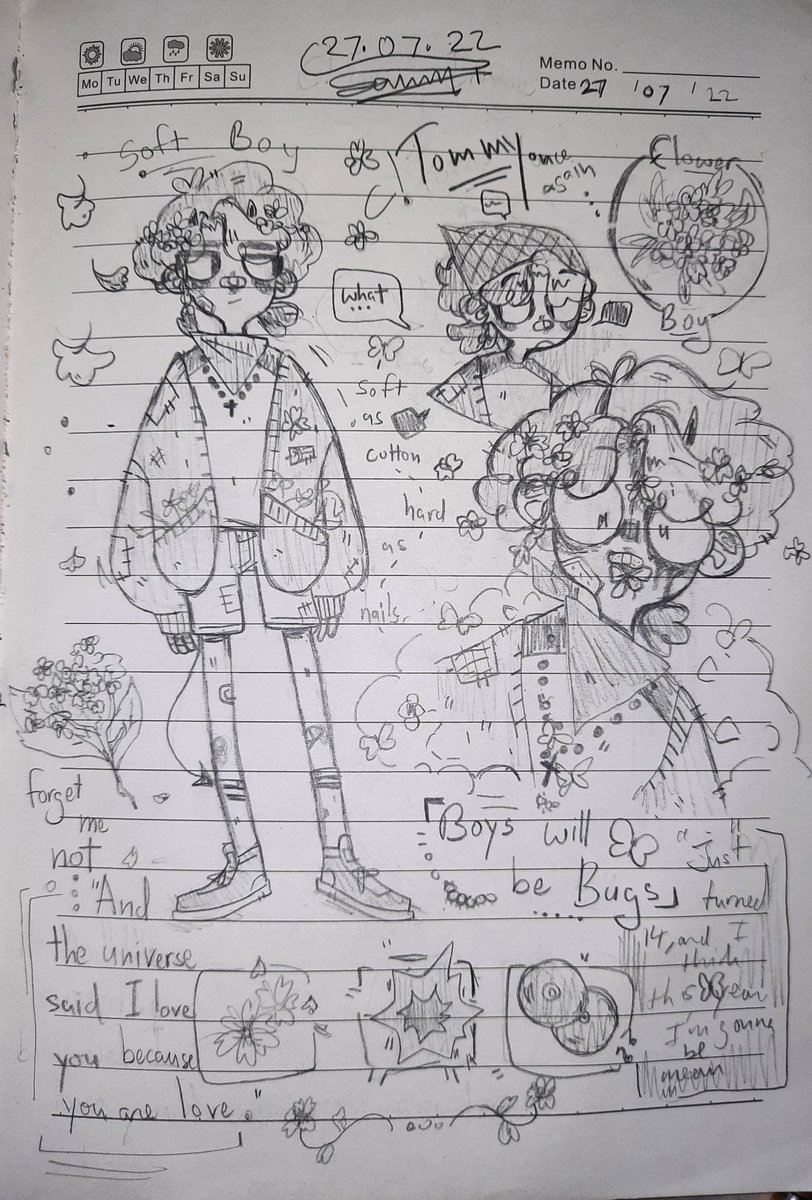 27.07.22
Mo Tu We Th Fr Sa Su
Memo No.
Date 27 / 07 / 22
Soft Boy
Tommy once
again
Flower
Boy
what
...
soft
as
cotton
hard
as
nails.
forget
me
not
「Boys will
be Bugs」
"And
the universe
said I love
you because
you are love."
"Just
turned
14, and I
think
this year
I'm gonna
be
mean